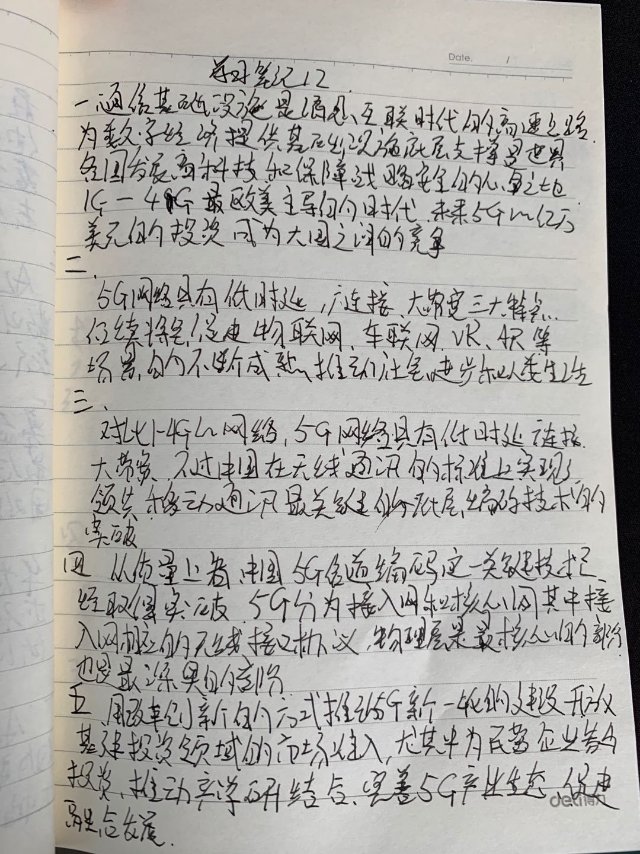 Date. /
学习笔记12
一、通信基础设施是信息、互联时代的高速之路.
为数字经济提供基础设施底层支撑是世界
各国发展高科技和保障战略安全的心重之地
1G-4G是欧美主导的时代,未来5G亿万
美元的投资成为大国之间的竞争
二、
5G网络具有低时延,广连接、大带宽三大特点.
后续将会促进物联网、车联网、VR、AR等
场景的不断成熟、推动社会进步和人类生活
三、
对比1-4G网络,5G网络具有低时延广连接
大带宽、不过中国在无线通讯的标准上实现了
领先和移动通讯最关键的底层,编码技术的
突破
四 从质量上看,中国5G信道编码这一关键技术已
经取得突破.5G分为接入网和核心网其中接
入网的无线接口协议,物理层是最核心的部份
也是最深奥的部份
五 用改革创新的方式推动5G新一轮的建设开放
基建投资领域的市场准入,尤其中为民营企业参与
投资,推动产学研结合、完善5G产业生态、促进
融合发展.
deli得力